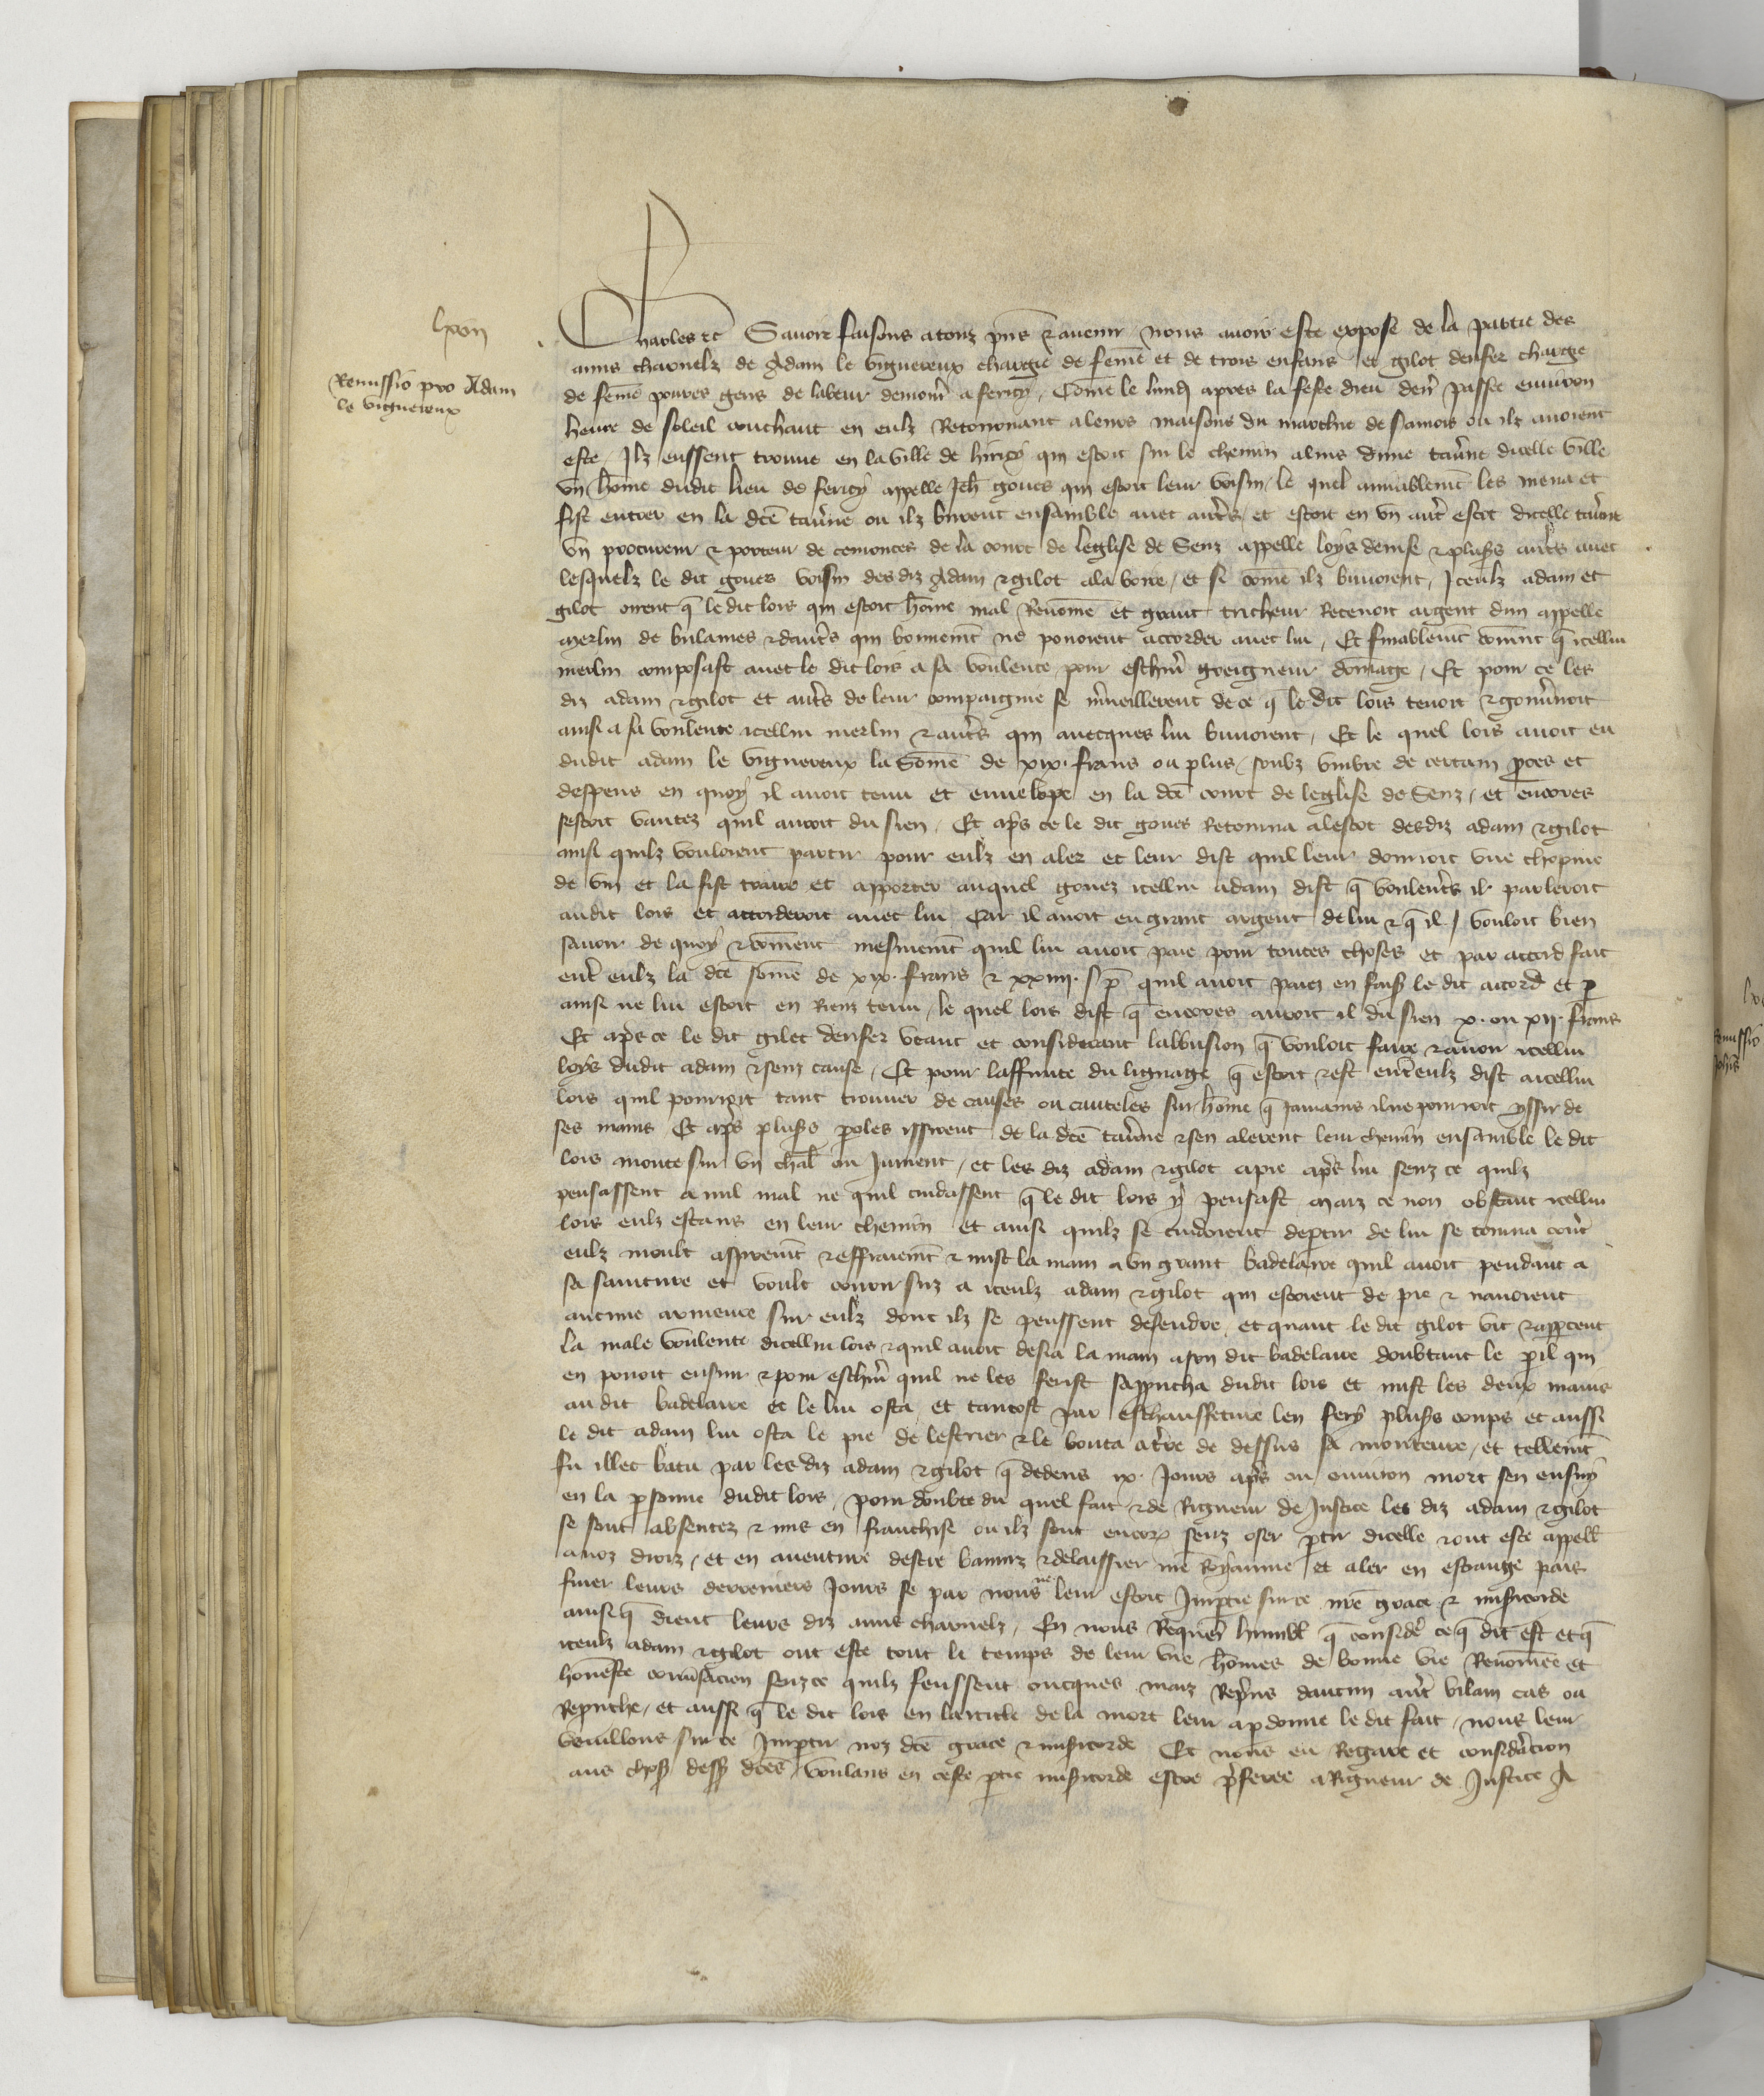 lxvii
Remissio pro Adam
le vignereux
Charles etc Savoir faisons a touz pñs & avenir nous avoir este expose de la partie des
amis charnelz de Adam le vignereux chargie de feme et de trois enfans et gilot denfer chargie
de feme povres gens de labeur demour̃ a fericy, Come le lundi apres la feste dieu der̃ passee environ
heure de soleil couchant en eulz Retournant a leurs maisons du marchie de samois ou ilz avoient
este, Ilz eussent trouve en la ville de hiricy qui estoit sur le chemin a luis dune tav̾ne dicelle ville
un home dudit lieu de fericy appelle Jeh̃ goues qui estoit leur voisin, le quel amiablemt̃ les mena et
fist entrer en la dcẽ tav̾ne ou ilz burent ensamble avec aut̾s, et estoit en un aut̾ escot dicelle tav̾ne
un procureur & porteur de cemonces de la court de leglise de Senz appelle loys denise & plus̾s aut̾s avec
lesquelz le dit goues voisin desdiz Adam & gilot ala boire, et si come ilz buvoient, Iceulz adam et
gilot oirent q̃ le dit lois qui estoit home mal Renome et grant tricheur Recevoit argent dun appelle
merlin de bulames & daut̾s qui bonnemt̃ ne pouoient accorder avec lui, Et finablemt̃ convint q̃ icellui
merlin composast avec le dit lois a sa voulente pour eschiv̾ greigneur domage, Et pour ce les
diz adam & gilot et aut̾s de leur compaignie se m̾veillerent de ce q̃ le dit lois tenoit & gouv̾noit
ainsi a sa voulente icellui merlin & aut̾s qui avecques lui buvoient, Et le quel lois avoit eu
dudit adam le vignereux la Some de xix. frans ou plus, soubz umbre de certain p̱ces et
despens en quoy il avoit tenu et envelope en la dcẽ court de leglise de Senz, et encores
sestoit vantez quil auroit du sien, Et ap̾s ce le dit goues Retourna a lescot desdiz adam & gilot
ainsi quilz vouloient partir pour eulz en aler et leur dist quil leur donroit une chopine
de vin et la fist traire et apporter auquel gouez icellui adam dist q̃ voulent̾s il parleroit
audit lois et accorderoit avec lui Car il avoit eu grant argent de lui & q̃ il vouloit bien
savoir de quoy & coment mesmemt̃ quil lui avoit paie pour toutes choses et par accord fait
ent̾ eulz la dcẽ some de xix. frans & xxiiii. s p̃ quil avoit paiez en fais̾ le dit accord et p̱
ainsi ne lui estoit en Riens tenu, le quel lois dist q̃ encores auroit il du sien x. ou xii. frans
Et ap̾s ce le dit gilet denfer veant et considerant labusion q̃ vouloit faire & avoir icellui
loys dudit adam & senz cause, Et pour laffinite du lignage q̃ estoit & est ent̾ eulz dist a icellui
lois quil pourroit tant trouver de causes ou cauteles sur home q̃ jamais il ne pourroit yssir de
ses mains Et ap̾s plus̾s p̱oles issirent de la dcẽ tav̾ne & sen alerent leur chemin ensamble le dit
lois monte sur un chal̃ ou jument, et les diz adam & gilot a pie ap̾s lui senz ce quilz
pensassent a nul mal ne quil cuidassent q̃ le dit lois y pensast Maiz ce non obstant icellui
lois eulz estans en leur chemin et ainsi quilz se cuidoient dep̱tir de lui se tourna cont̾
eulz moult aspremt̃ & effraiemt̃ & mist la main a un grant badelaire quil avoit pendant a
sa sainture et voult courir sus a iceulz adam & gilot qui estoient de pie & navoient
aucune armeure sur eulz dont ilz se peussent defendre, et quant le dit gilot vit & app̱ceut
la male voulente dicellui lois & quil avoit desia la main a son dit badelaire doubtant le p̱il qui
en pouoit ensuir & pour eschiv̾ quil ne les ferist sapprucha dudit lois et mist les deux mains
au dit badelaire et le lui osta, et tantost par eschauffeture len fery plus̾s coups et aussi
le dit adam lui osta le pie de lestrier & le bouta a t̾re de dessus sa monteure, et tellemt̃
fu illec batu par les diz adam & gilot q̃ dedens ix. jours ap̾s ou environ mort sen ensuy
en la p̱sonne dudit lois, pour doubte du quel fait & de Rigueur de Justice les diz adam & gilot
se sont absentez & mis en franchise ou ilz sont encor̾ senz oser p̱tir dicelle & ont este appell̃
a noz droiz, et en aventure destre baniz & delaissier nr̃e Royaume et aler en estrange pais
finer leurs derreniers jours se par nous ne leur estoit Imp̱tie sur ce nr̃e grace & mis̾icorde
ainsi q̃ dient leurs diz amis charnelz, En nous Requer̃ humbl̃ q̃ consider̃ ce q̃ dit est et q̃
iceulz adam & gilot ont este tout le temps de leur vie homes de bonne vie Renomee et
honeste conv̾sacion senz ce quilz feussent oncques maiz Rep̾ns daucun aut̾ vilain cas ou
Reprouche, et aussi q̃ le dit lois en larticle de la mort leur a p̱donne le dit fait, nous leur
veuillons sur ce Imp̱tir noz dcẽ grace & mis̾icorde Et nous eu Regart et considerac̃ion
aus chos̾ dess̾ dcẽs, voulans en ceste p̱tie mis̾icorde estre p̾feree a Rigueur de Justice A